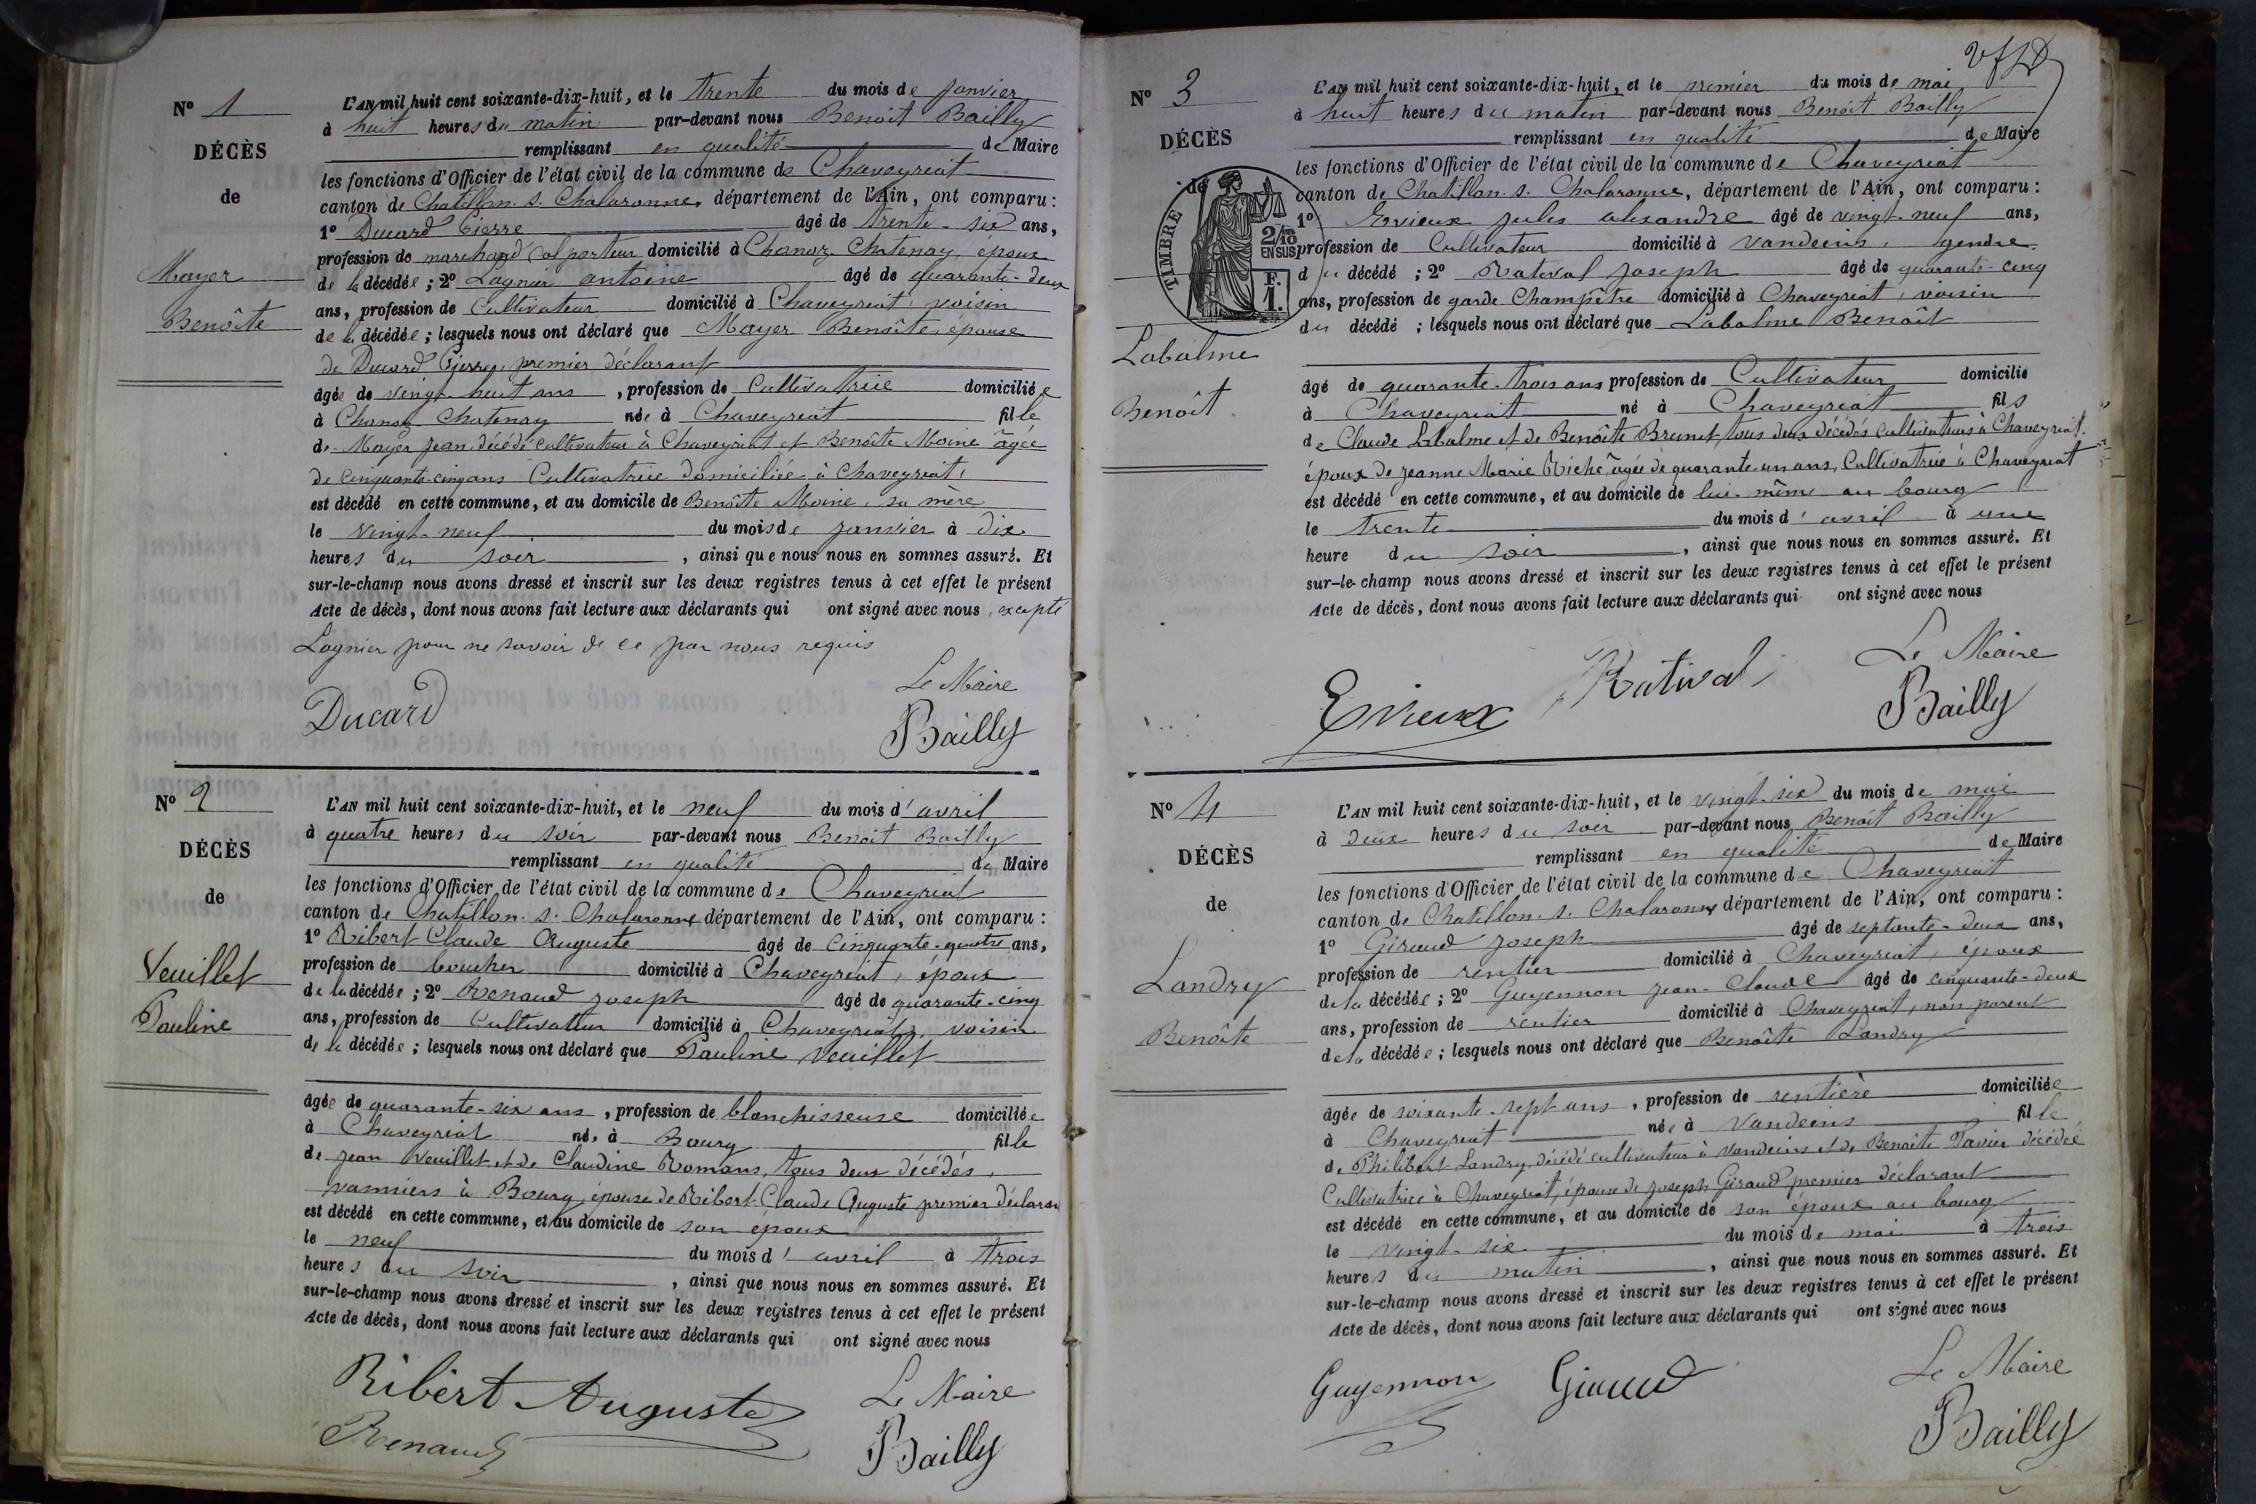 N° 1
DÉCÈS
de
Mayer
Benoîte
L'AN mil huit cent soixante-dix-huit, et le trente du mois de janvier
à huit heures du matin par-devant nous Benoit Bailly
remplissant en qualité de Maire
les fonctions d'Officier de l'état civil de la commune de Chaveyriat
canton de Chatillon. s. Chalaronne, département de l'Ain, ont comparu :
1° Ducard Pierre âgé de trente-six ans,
profession de marchand colporteur domicilié à Chanoz-Chatenay, époux
de la décédée ; 2° Lagnier antoine âgé de quarante-deux
ans, profession de Cultivateur domicilié à Chaveyriat, voisin
de la décédée ; lesquels nous ont déclaré que Mayer Benoîte, épouse
de Ducard Pierre, premier déclarant
âgée de vingt-huit ans, profession de Cultivatrice domiciliée
à Chanoz-Chatenay née à Chaveyriat fille
de Mayer jean, décédé cultivateur à Chaveyriat et Benoîte Moine âgée
de cinquante-cinq ans Cultivatrice domiciliée à Chaveyriat,
est décédé en cette commune, et au domicile de Benoîte Moine, sa mère
le vingt-neuf du mois de janvier à dix
heures du soir, ainsi que nous nous en sommes assuré. Et
sur-le-champ nous avons dressé et inscrit sur les deux registres tenus à cet effet le présent
Acte de décès, dont nous avons fait lecture aux déclarants qui ont signé avec nous, excepté
Lagnier pour ne savoir de ce par nous requis
Le Maire
Ducard
Bailly
N° 2
DÉCÈS
de
Veuillet
Pauline
L'AN mil huit cent soixante-dix-huit, et le neuf du mois d'avril
à quatre heures du soir par-devant nous Benoit Bailly
remplissant en qualité de Maire
les fonctions d'Officier de l'état civil de la commune de Chaveyriat
canton de Chatillon. s. Chalaronne département de l'Ain, ont comparu :
1° Ribert Claude Auguste âgé de Cinquante-quatre ans,
profession de boucher domicilié à Chaveyriat, époux
de la décédée ; 2° Renaud joseph âgé de quarante-cinq
ans, profession de Cultivateur domicilié à Chaveyriat, voisin
de la décédée ; lesquels nous ont déclaré que Pauline Veuillet
âgée de quarante-six ans, profession de blanchisseuse domiciliée
à Chaveyriat née à Bourg fille
de jean Veuillet et de Claudine Romans, tous deux décédés,
vanniers à Bourg, épouse de Ribert Claude Auguste premier déclarant
est décédé en cette commune, et au domicile de son époux
le neuf du mois d'avril à trois
heures du soir, ainsi que nous nous en sommes assuré. Et
sur-le-champ nous avons dressé et inscrit sur les deux registres tenus à cet effet le présent
Acte de décès, dont nous avons fait lecture aux déclarants qui ont signé avec nous
Ribert Auguste
Le Maire
Renaud
Bailly
N° 3
DÉCÈS
de
TIMBRE
2/10
EN SUS
F.
1.
Labalme
Benoît
L'AN mil huit cent soixante-dix-huit, et le premier du mois de mai
à huit heures du matin par-devant nous Benoit Bailly
remplissant en qualité de Maire
les fonctions d'Officier de l'état civil de la commune de Chaveyriat
canton de Chatillon. s. Chalaronne, département de l'Ain, ont comparu :
1° Ervieux jules alexandre âgé de vingt-neuf ans,
profession de Cultivateur domicilié à Vandeins, gendre
du décédé ; 2° Rativat joseph âgé de quarante-cinq
ans, profession de garde Champêtre domicilié à Chaveyriat, voisin
du décédé ; lesquels nous ont déclaré que Labalme Benoît
âgé de quarante-trois ans profession de Cultivateur domicilié
à Chaveyriat né à Chaveyriat fils
de Claude Labalme et de Benoîte Brunet, tous deux décédés cultivateurs à Chaveyriat
époux de jeanne Marie Riche âgée de quarante-un ans, Cultivatrice à Chaveyriat
est décédé en cette commune, et au domicile de lui-même au bourg
le trente du mois d'avril à une
heure du soir, ainsi que nous nous en sommes assuré. Et
sur-le-champ nous avons dressé et inscrit sur les deux registres tenus à cet effet le présent
Acte de décès, dont nous avons fait lecture aux déclarants qui ont signé avec nous
Le Maire
Ervieux
Rativat
Bailly
N° 4
DÉCÈS
de
Landry
Benoîte
L'AN mil huit cent soixante-dix-huit, et le vingt-six du mois de mai
à deux heures du soir par-devant nous Benoit Bailly
remplissant en qualité de Maire
les fonctions d'Officier de l'état civil de la commune de Chaveyriat
canton de Chatillon. s. Chalaronne département de l'Ain, ont comparu :
1° Giraud joseph âgé de septante-deux ans,
profession de rentier domicilié à Chaveyriat, époux
de la décédée ; 2° Guyennon jean-Claude âgé de cinquante-deux
ans, profession de rentier domicilié à Chaveyriat, non parent
de la décédée ; lesquels nous ont déclaré que Benoîte Landry
âgée de soixante-sept ans, profession de rentière domiciliée
à Chaveyriat née à Vandeins fille
de Philibert Landry, décédé cultivateur à Vandeins et de Benoîte Pavier décédée
Cultivatrice à Chaveyriat, épouse de joseph Giraud premier déclarant
est décédé en cette commune, et au domicile de son époux au bourg
le vingt-six du mois de mai à trois
heures du matin, ainsi que nous nous en sommes assuré. Et
sur-le-champ nous avons dressé et inscrit sur les deux registres tenus à cet effet le présent
Acte de décès, dont nous avons fait lecture aux déclarants qui ont signé avec nous
Le Maire
Guyennon
Giraud
Bailly